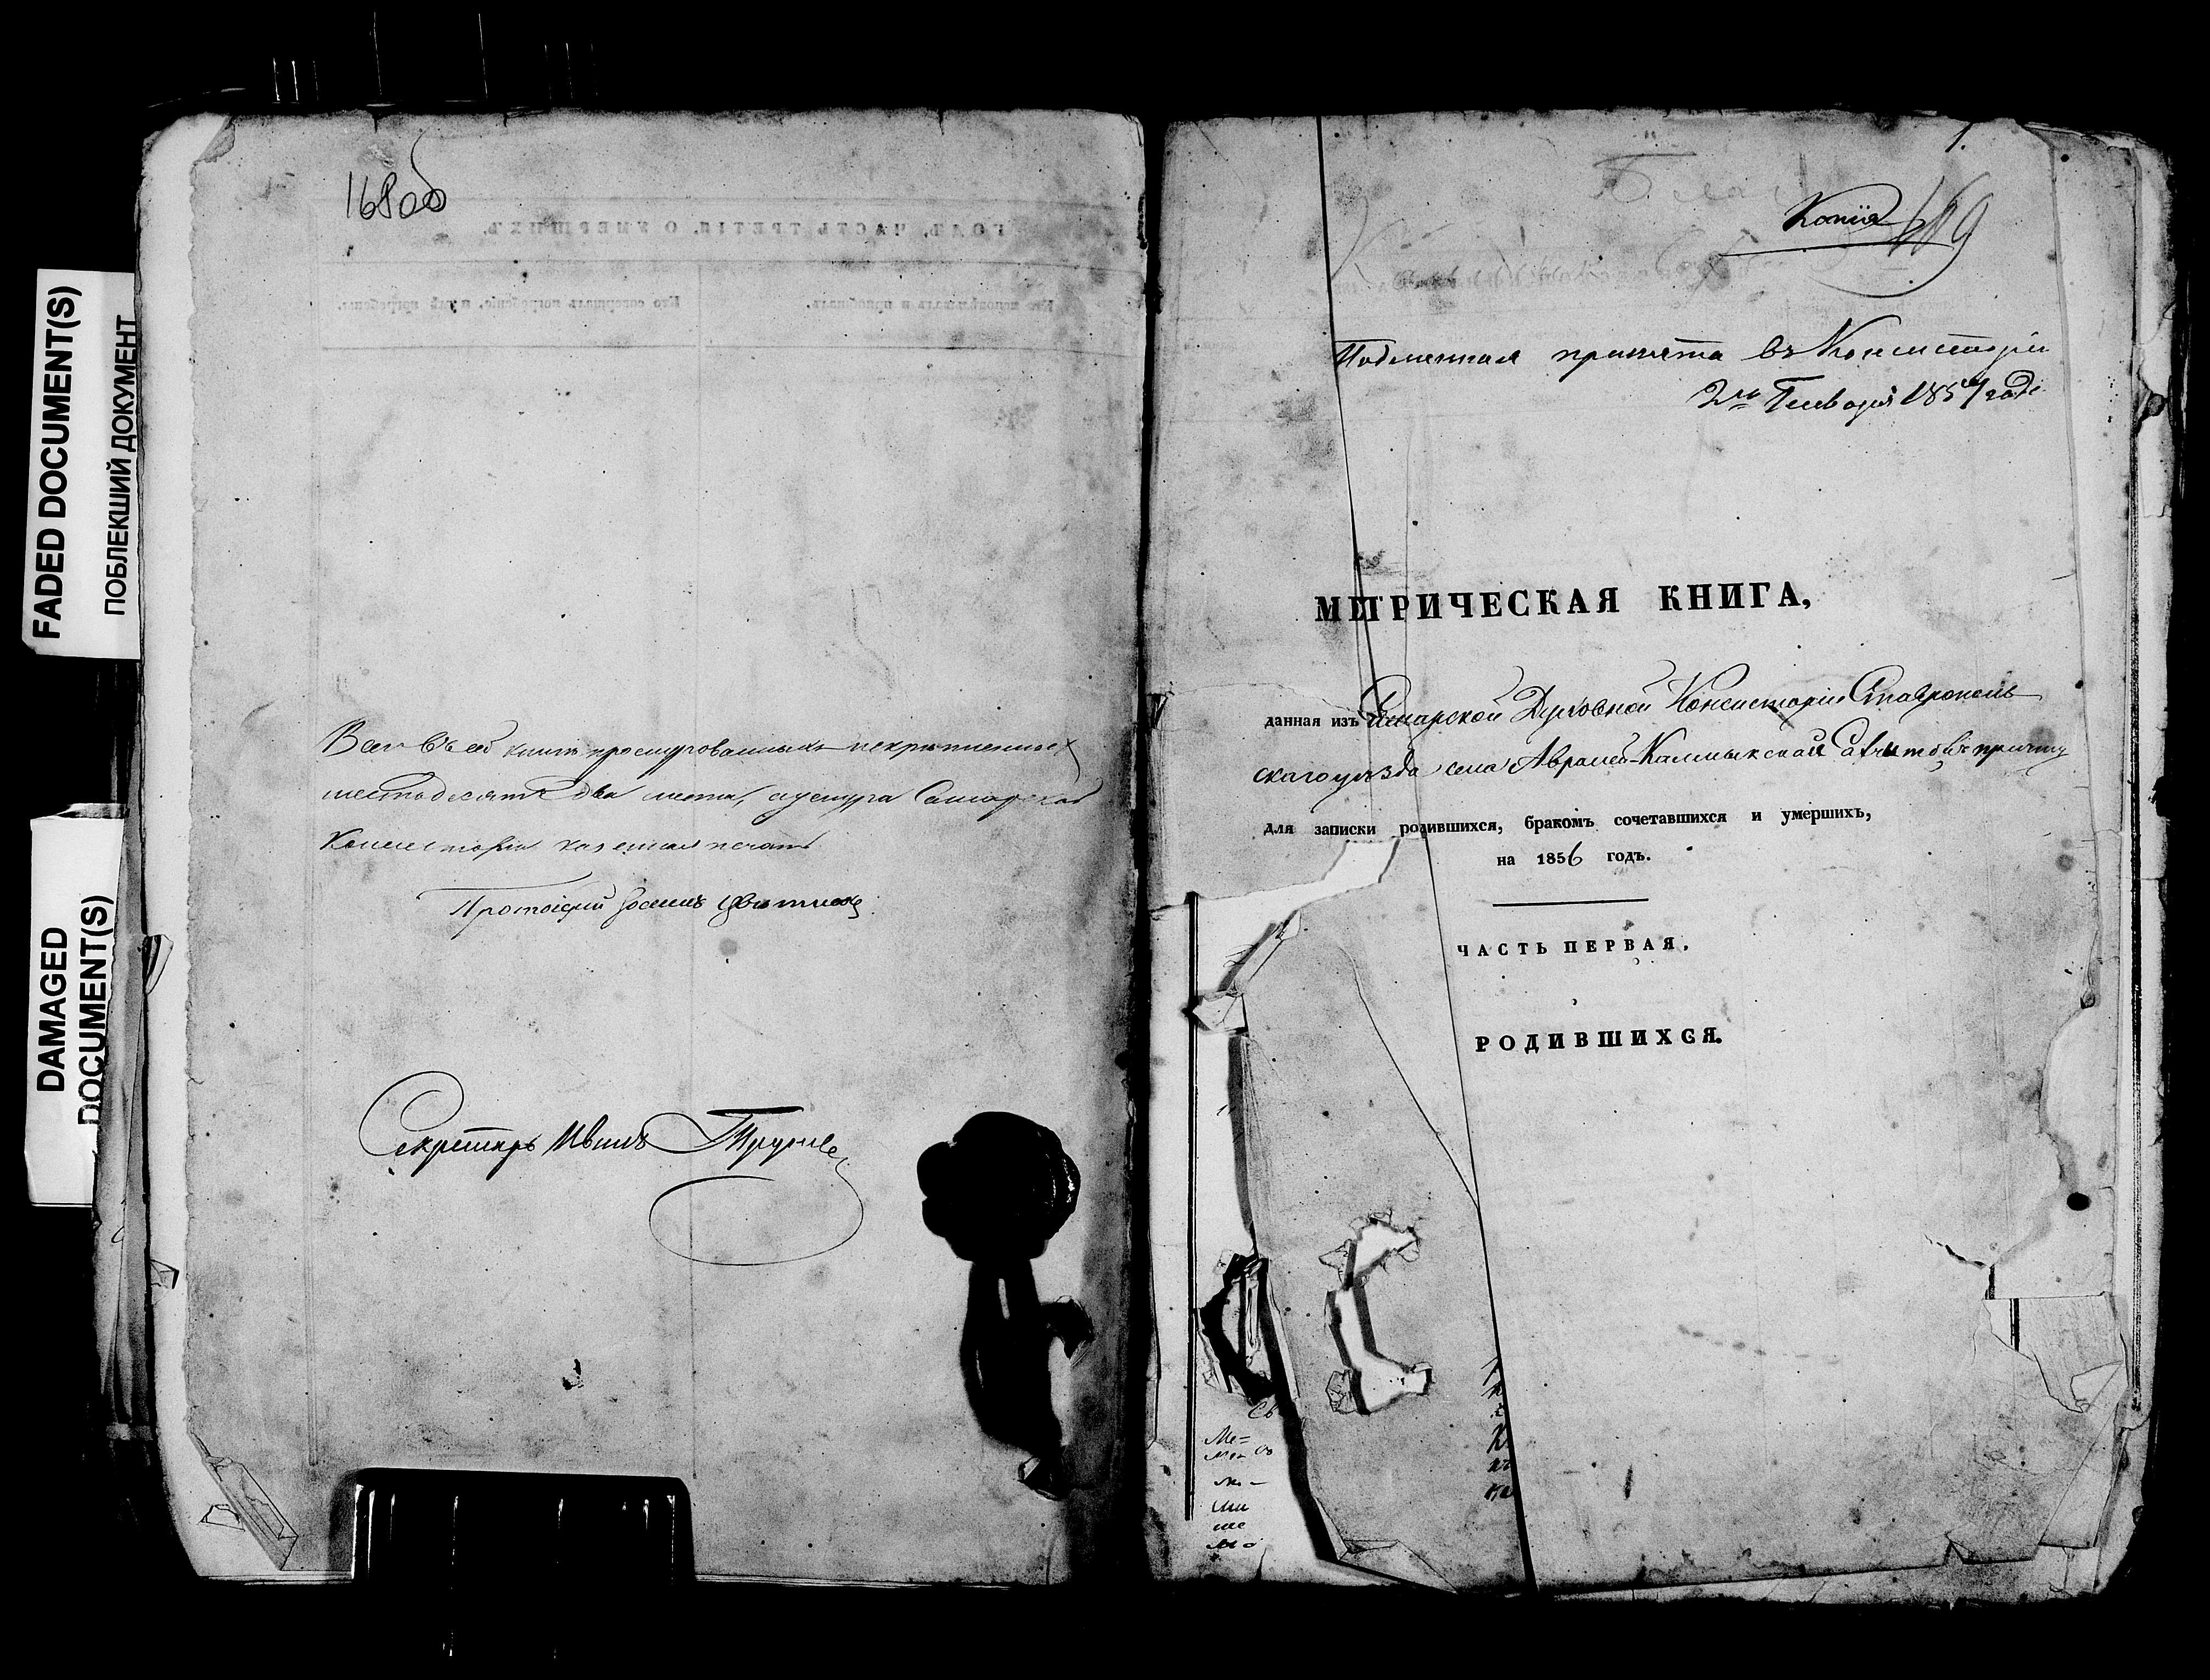 FADED DOCUMENT(S)
ПОБЛЕКШИЙ ДОКУМЕНТ
DAMAGED
DOCUMENT(S)
168об
Всего въ сей книге прошнурованныхъ искрепленныхъ
шестьдесятъ два листа, а у шнура Самарской
Консисторіи казенная печать
Протоіерей Іоаннъ
Секретарь Иванъ
1.
Копія
169
Подлинная принята въ Консисторіи
2го Генваря 1857 года
МЕТРИЧЕСКАЯ КНИГА,
данная изъ Самарской Духовной Консисторіи Ставрополь
скаго уезда села Калмыкской причту
для записки родившихся, бракомъ сочетавшихся и умершихъ,
на 1856 годъ.
ЧАСТЬ ПЕРВАЯ.
РОДИВШИХСЯ.